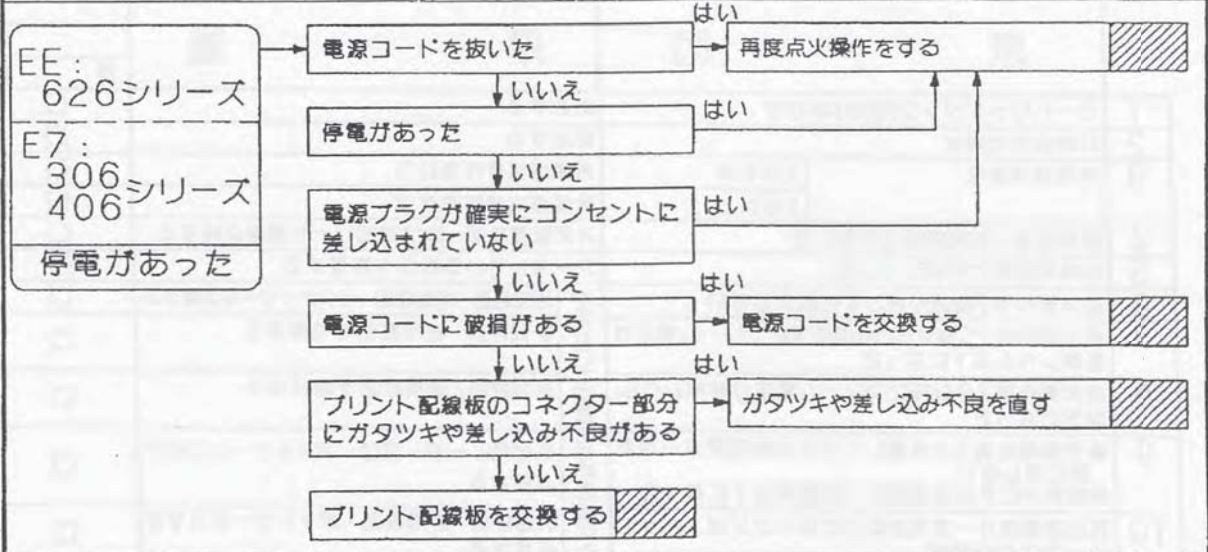 EE：
626シリーズ
E7：
306
406
シリーズ
停電があった
電源コードを抜いた
はい
再度点火操作をする
いいえ
停電があった
はい
いいえ
電源プラグが確実にコンセントに
差し込まれていない
はい
いいえ
電源コードに破損がある
はい
電源コードを交換する
いいえ
プリント配線板のコネクター部分
にガタツキや差し込み不良がある
はい
ガタツキや差し込み不良を直す
いいえ
プリント配線板を交換する